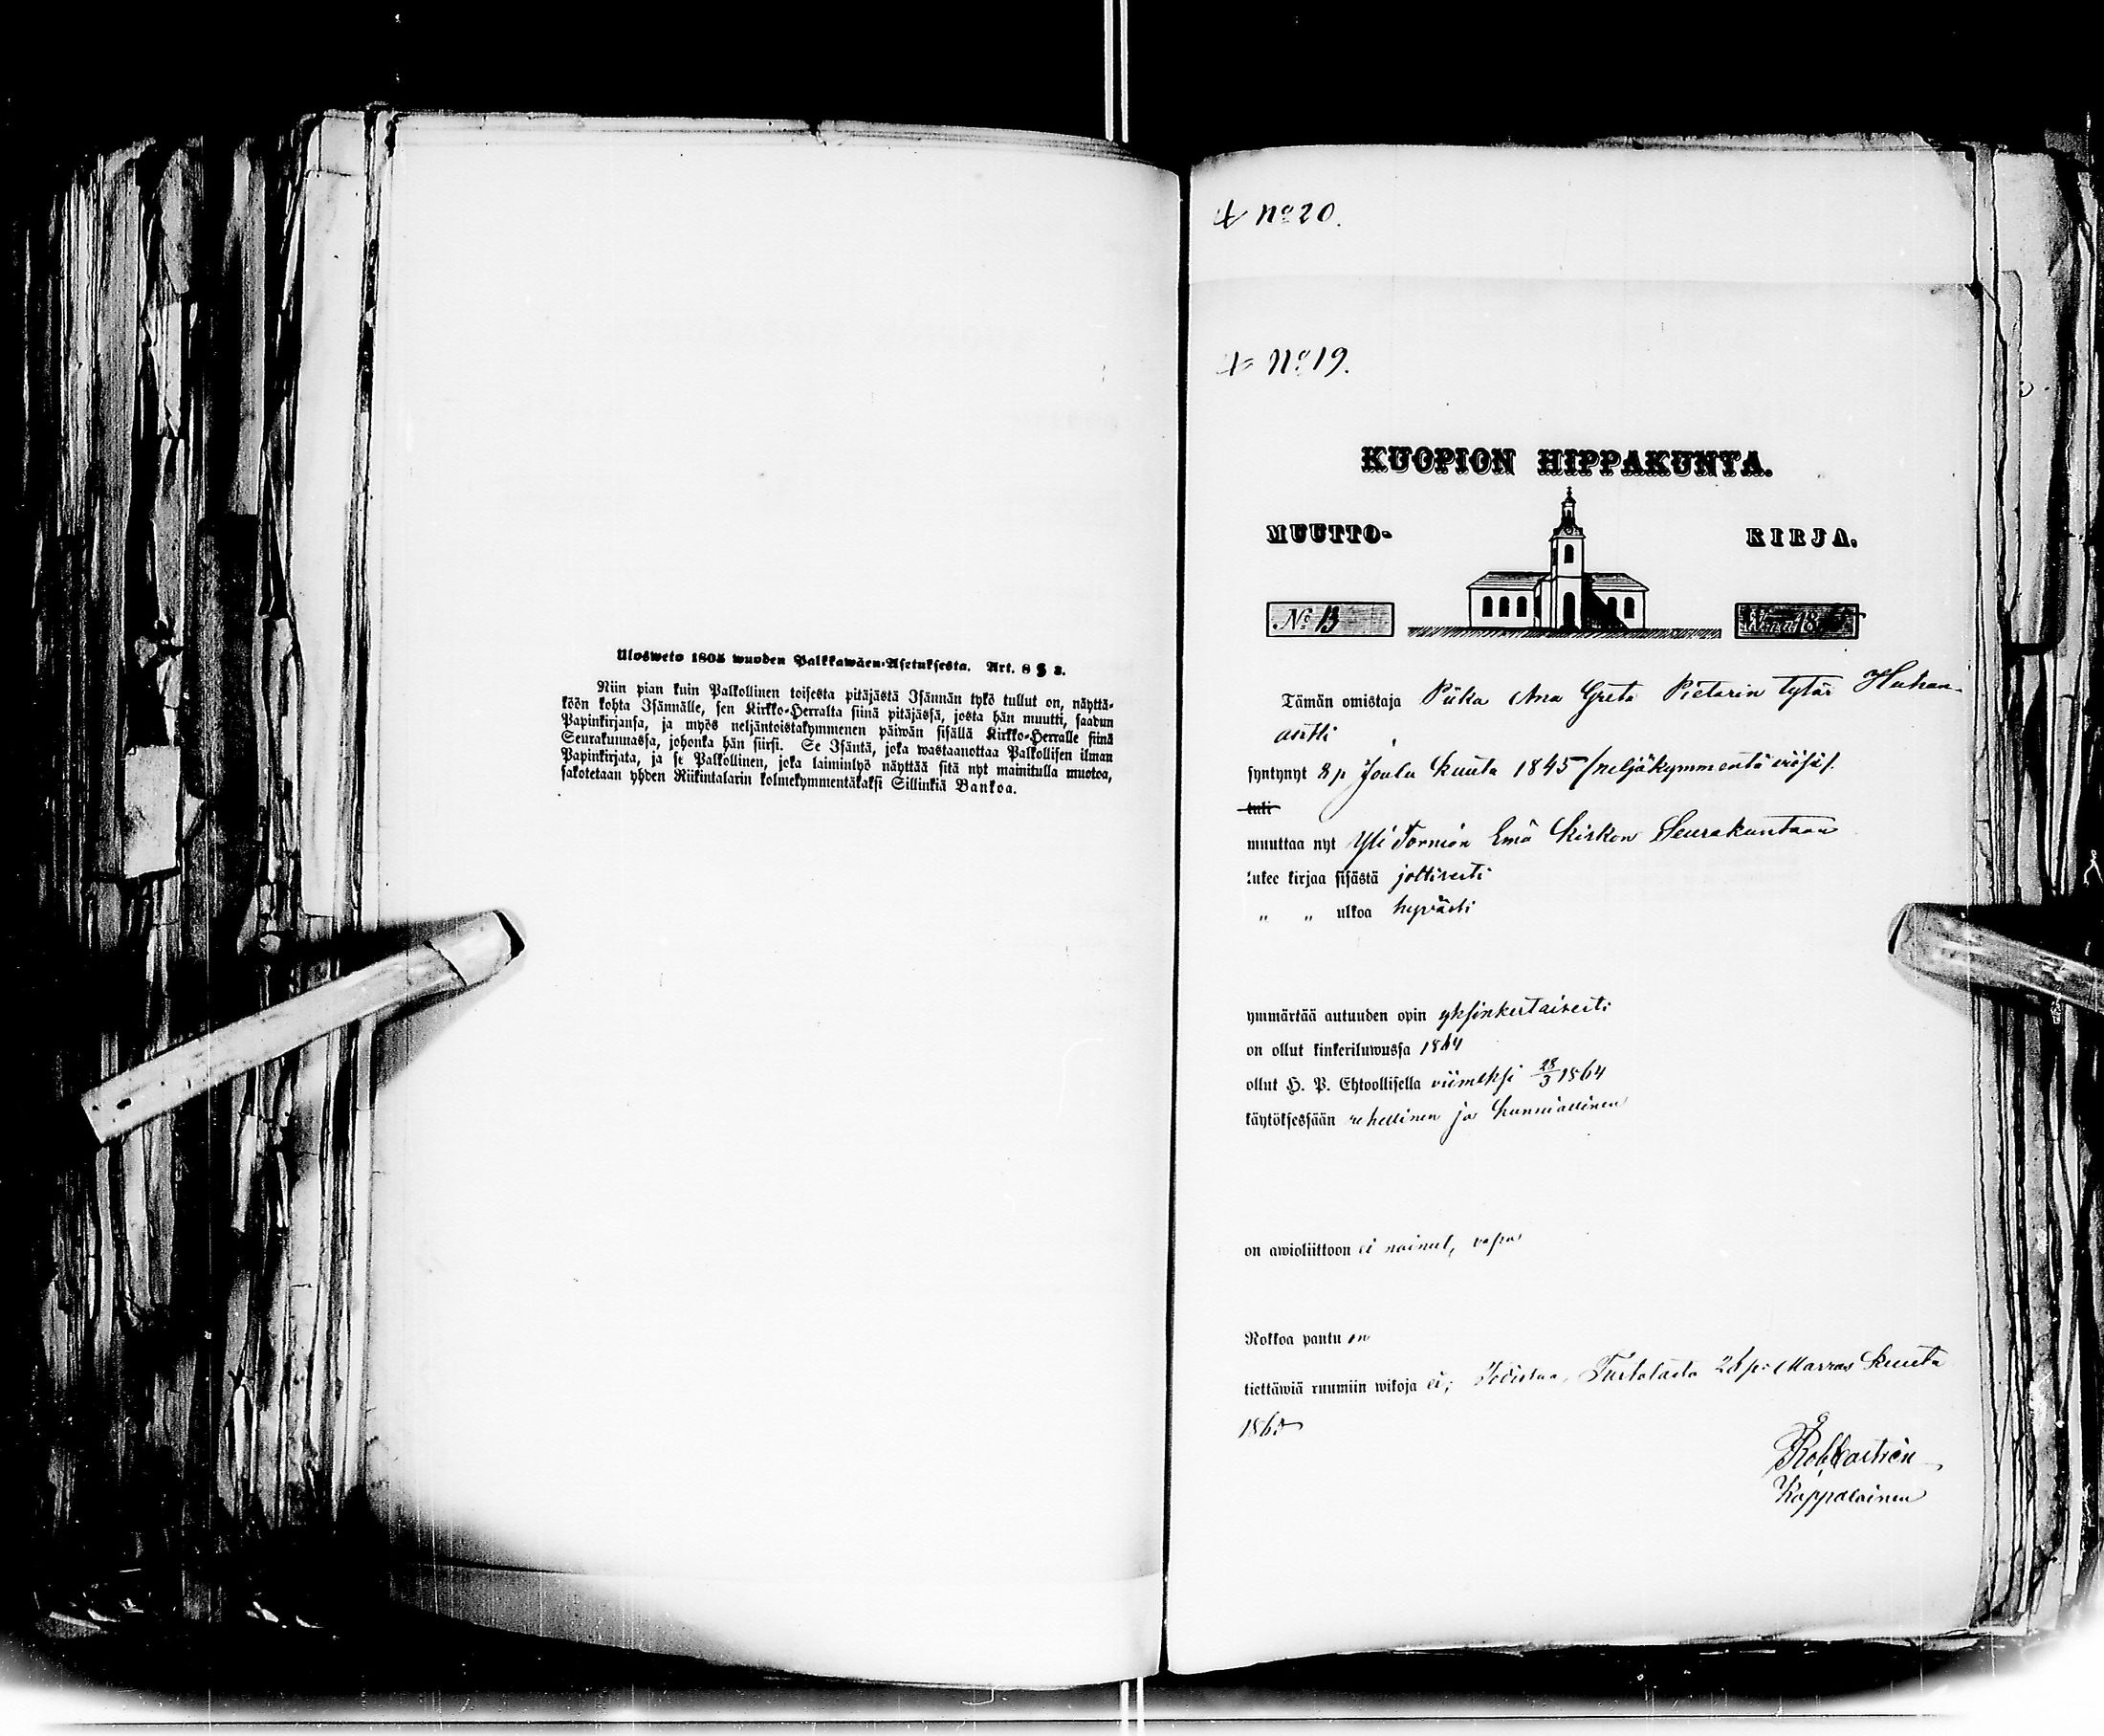 Ulosweto 1805 wuoden Palkkawäen-Asetuksesta. Art. 8 § 3.
Niin pian kuin Palkollinen toisesta pitäjästä Isännän tykö tullut on, näyttä-
köön kohta Isännälle, sen Kirkko-Herralta siinä pitäjässä, josta hän muutti, saadun
Papinkirjansa, ja myös neljäntoistakymmenen päiwän sisällä Kirkko-Herralle siinä
Seurakunnassa, johonka hän siirsi. Se Isäntä, joka wastaanottaa Palkollisen ilman
Papinkirjata, ja se Palkollinen, joka laiminlyö näyttää sitä nyt mainitulla muotoa,
sakotetaan yhden Riikintalarin kolmekymmentäkaksi Sillinkiä Bankoa.
No 20.
No 19.
KUOPION HIPPAKUNTA.
MUUTTO- KIRJA.
No 13 18
Tämän omistaja Piika Ana Greta Pietarin tytär Huhan-
antti
syntynyt 8 p Joulu Kuuta 1845 /neljäkymmentä wiisi/.
tuli
muuttaa nyt Yli Tornion Emä Kirkon Seurakuntaan
lukee kirjaa sisästä joltisesti
" " ulkoa hyvästi
ymmärtää autuuden opin yksinkertaisesti
on ollut kinkeriluwussa 1864
ollut H. P. Ehtoollisella viimeksi 28/3 1864
käytöksessään rehellinen ja kunniallinen
on awioliittoon ei nainut, vapa
Rokkoa pantu on
tiettäwiä ruumiin wikoja ei; Todistaa, Turtolasta p: Marras Kuuta
Kappalainen